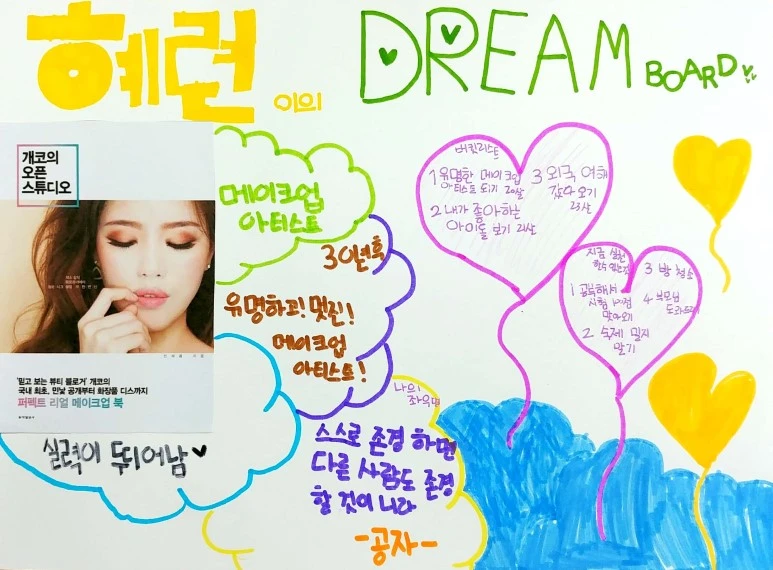 혜련
이의
DREAM
BOARD
개코의
오픈
스튜디오
'믿고 보는 뷰티 블로거' 개코의
국내 최초, 민낯 공개부터 화장품 디스까지
퍼펙트 리얼 메이크업 북
메이크업
아티스트
30년후
유명하고! 멋진!
메이크업
아티스트!
실력이 뛰어남
나의
좌우명
스스로 존경 하면
다른 사람도 존경
할 것이니라
-공자-
버킷리스트
1 유명한 메이크업
아티스트 되기 20살
2 내가 좋아하는
아이돌 보기 21살
3 외국 여행
갔다 오기
23살
지금 실천
할수 있는것
1 공부해서
시험
맞아오기
2 숙제 밀지
말기
3 방 청소
4 부모님